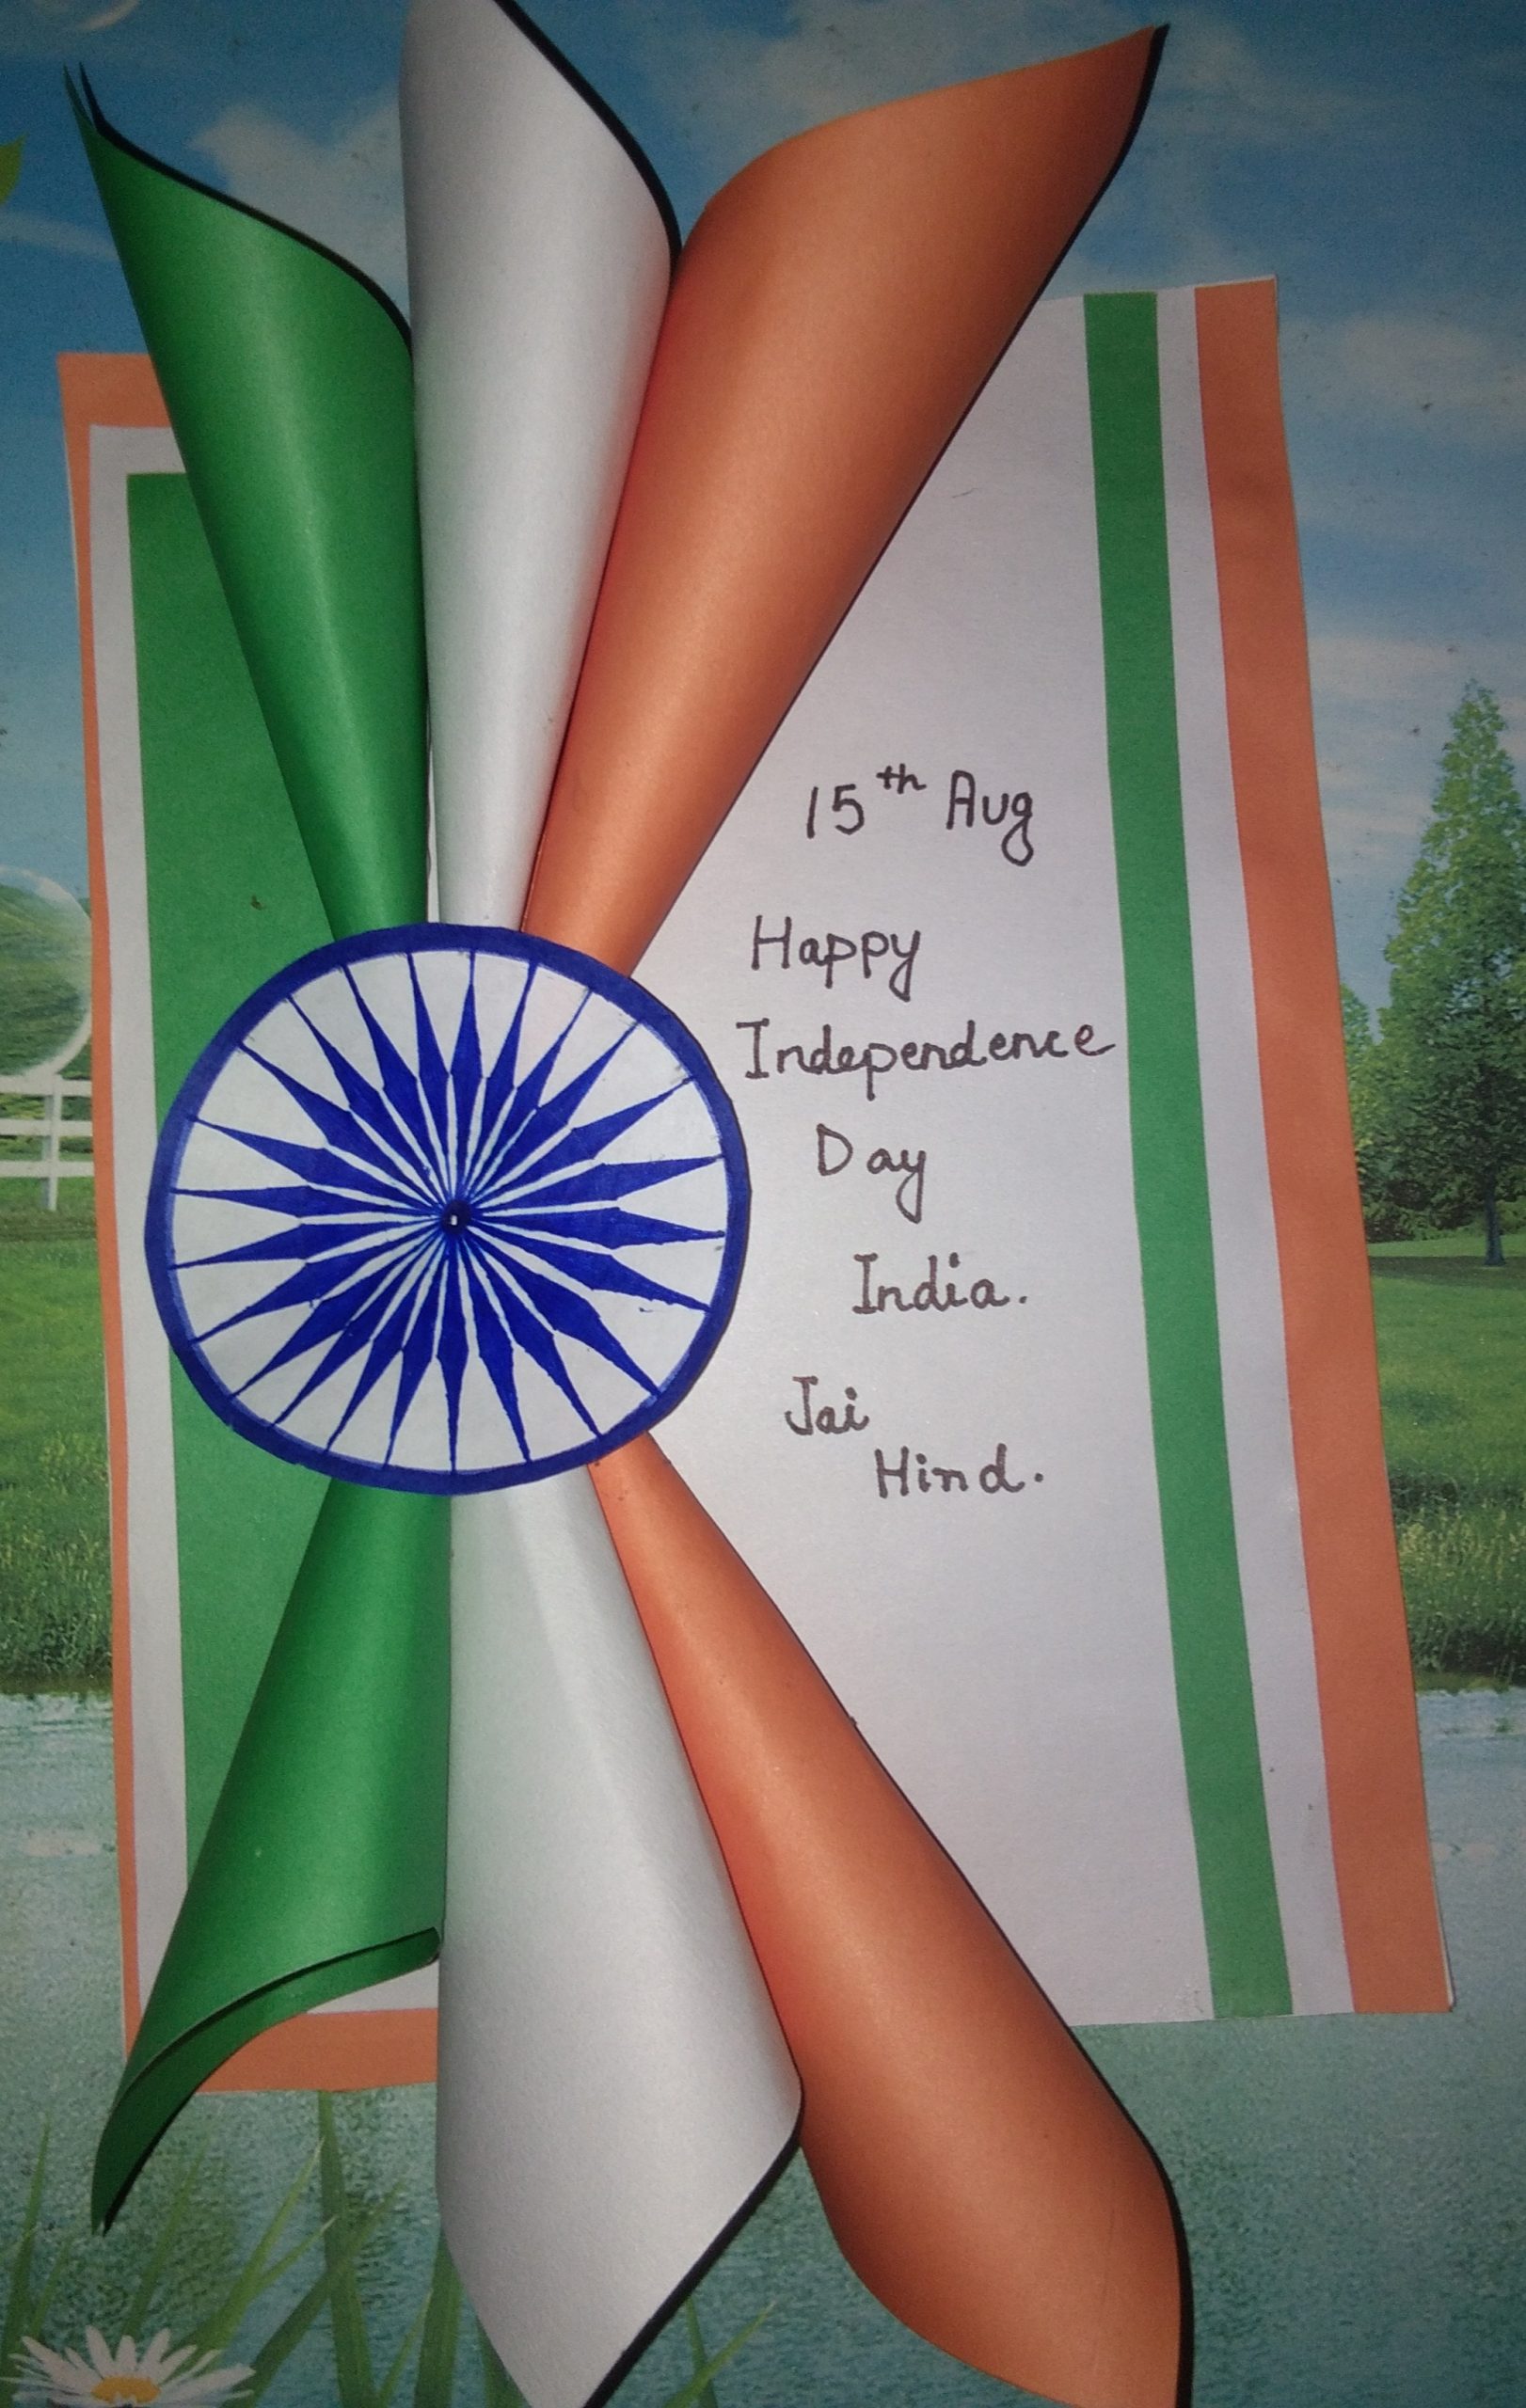 15th Aug
Happy
Independence
Day
India.
Jai
Hind.